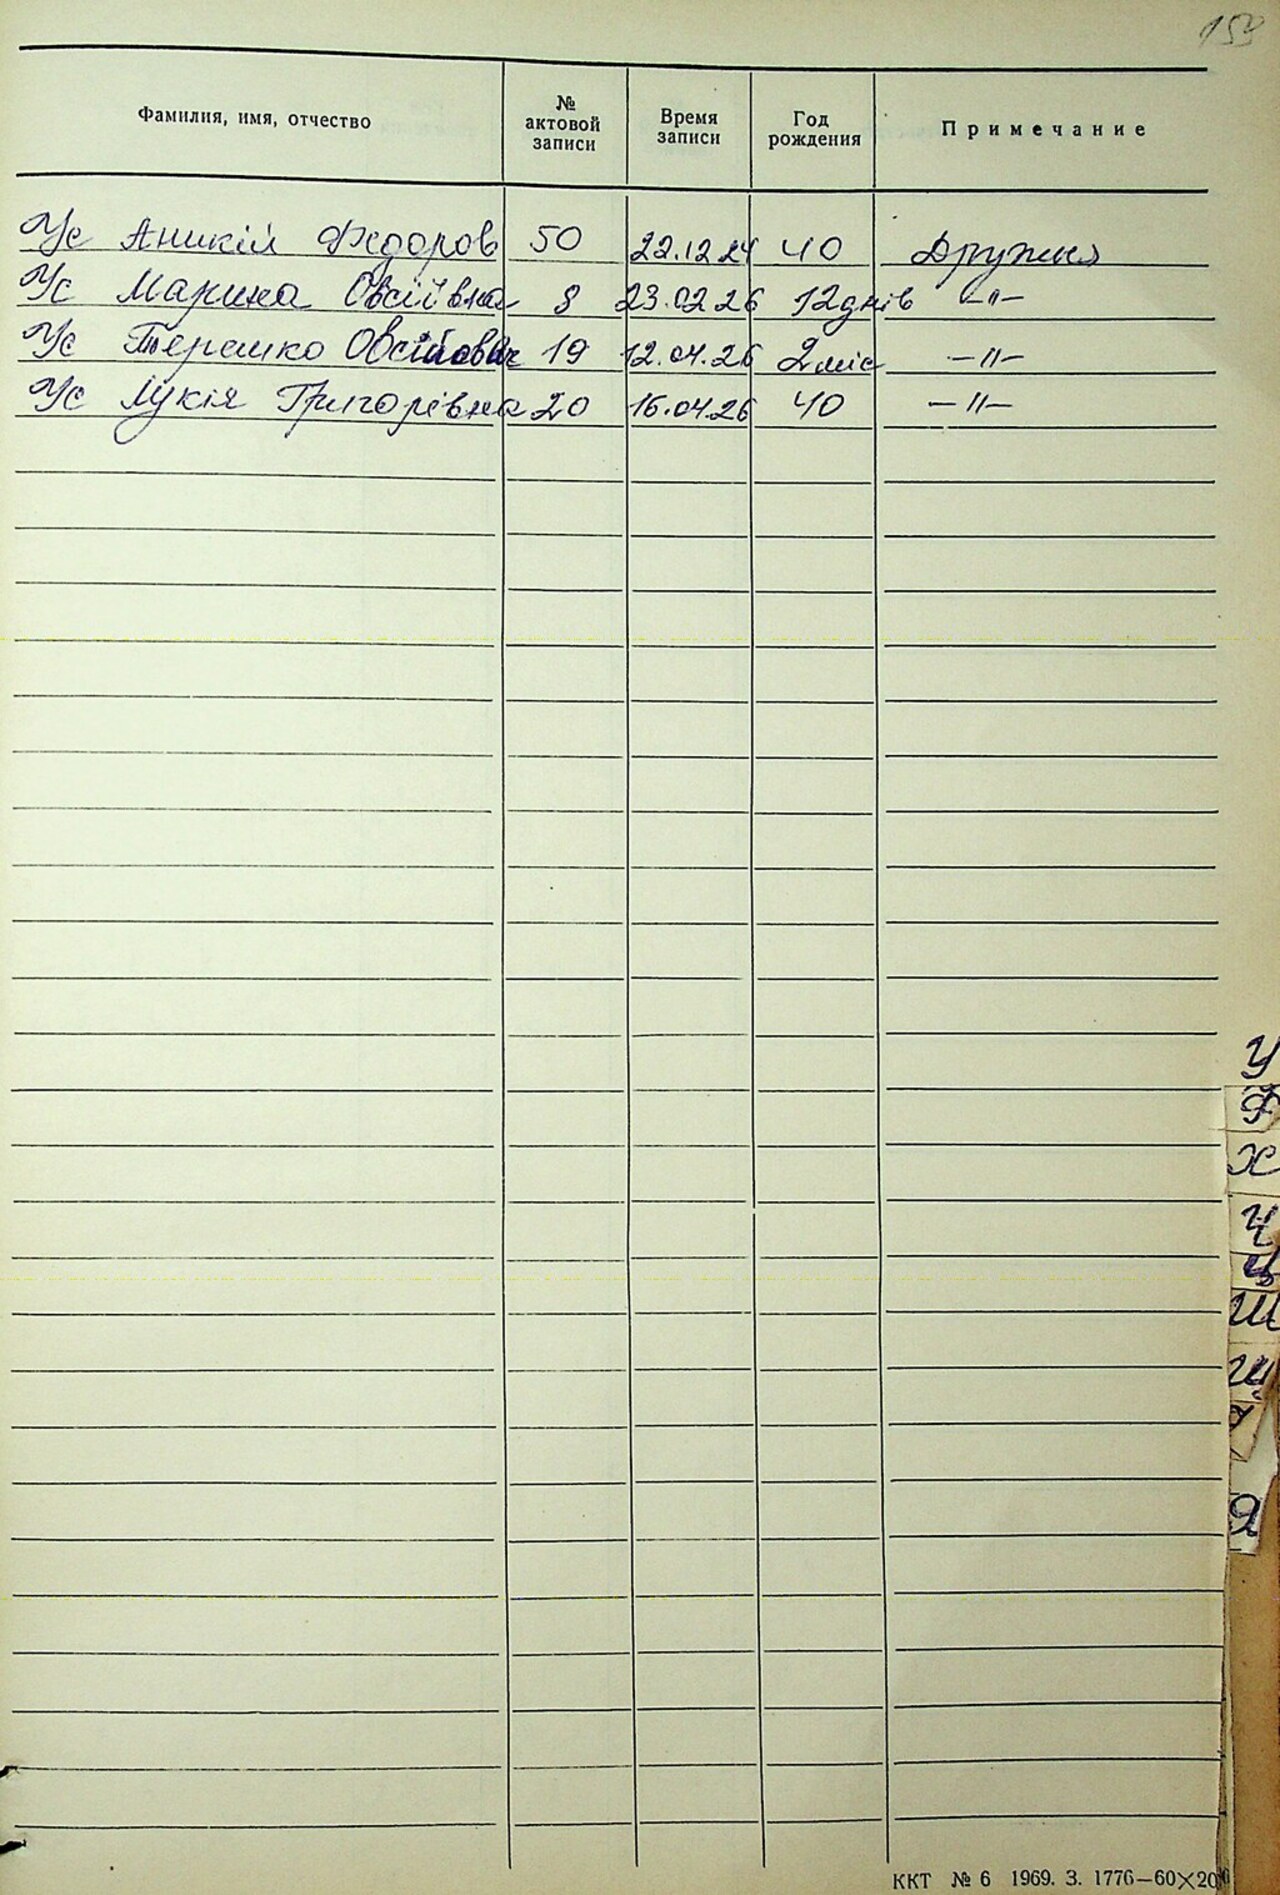 Фамилия, имя, отчество № актовой записи Время записи Год рождения Примечание
Ус Аникій Федоров 50 22.12.24 40 Дружня
Ус Марина Овсіївна 8 23.02.26 12 днів -"-
Ус Терешко Овсійович 19 12.04.26 2 міс -"-
Ус Лукія Григорівна 20 16.04.26 40 -"-
У
Ф
Х
Ч
Ц
Ш
Щ
Я
ККТ № 6 1969. З. 1776—60×20